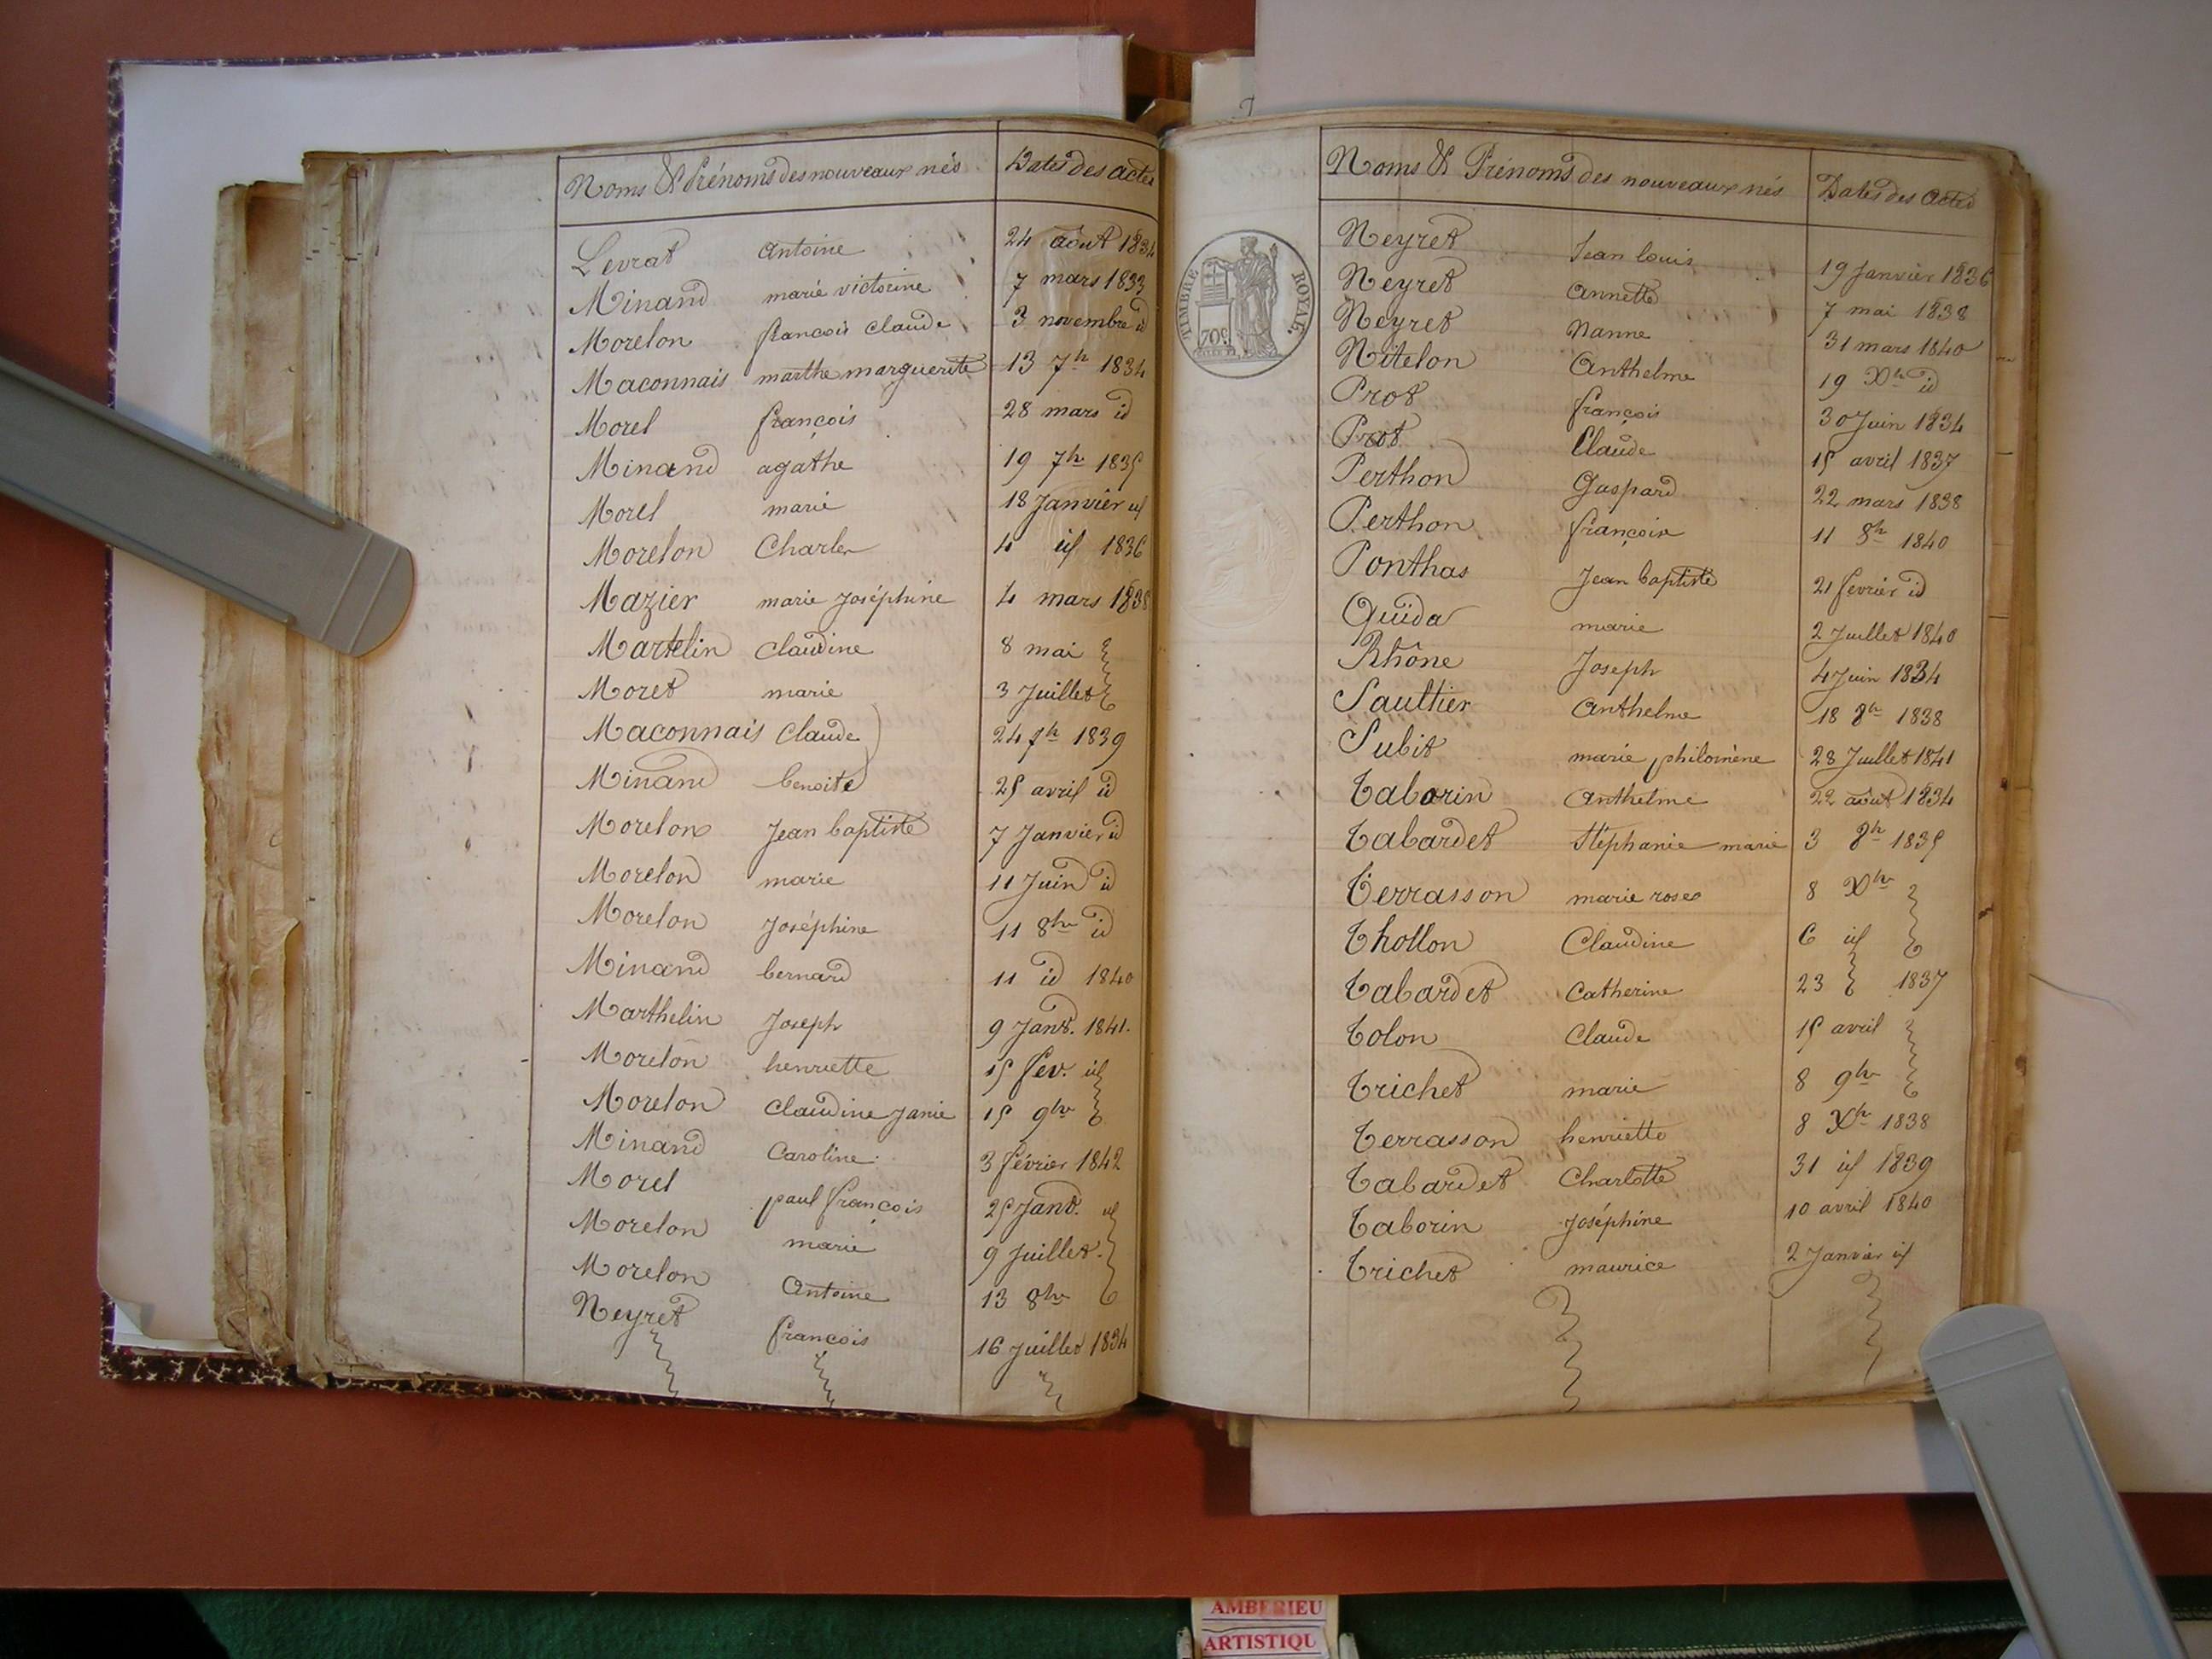 Noms & Prénoms des nouveaux nés Dates des actes
Levrat Antoine 24 août 1834
Minand marie victorine 7 mars 1833
Morelon francois Claude 3 novembre id
Maconnais marthe marguerite 13 7bre 1834
Morel françois 28 mars id
Minand agathe 19 7bre 1835
Morel marie 18 Janvier id
Morelon Charles 4 id 1836
Mazier marie Joséphine 4 mars 1838
Martelin Claudine 8 mai
Moret marie 3 Juillet
Maconnais Claude 24 7bre 1839
Minand benoite 25 avril id
Morelon Jean baptiste 7 Janvier id
Morelon marie 11 Juin id
Morelon Joséphine 11 8bre id
Minand bernard 11 id 1840
Marthelin Joseph 9 Janv. 1841.
Morelon henriette 15 fev. id
Morelon Claudine Janie 15 9bre
Minand Caroline 3 février 1842
Morel paul françois 25 Janv. id
Morelon marie 9 Juillet
Morelon Antoine 13 8bre
Neyret francois 16 Juillet 1834
TIMBRE ROYAL
70c
Noms & Prénoms des nouveaux nés Dates des actes
Neyret Jean louis 19 Janvier 1836
Neyret annette 7 mai 1838
Neyret Nanne 31 mars 1840
Nitelon Anthelme 19 Xbre id
Prot françois 30 Juin 1834
Prot Claude 15 avril 1837
Perthon Gaspard 22 mars 1838
Perthon françoise 11 8bre 1840
Ponthas Jean baptiste 21 fevrier id
Quida marie 2 Juillet 1840
Rhône Joseph 4 Juin 1834
Saultier Anthelme 18 8bre 1838
Subit marie philomène 28 Juillet 1841
Taborin Anthelme 22 août 1834
Tabardet Stéphanie marie 3 8bre 1835
Terrasson marie rose 8 Xbre
Thollon Claudine 6 id
Tabardet Catherine 23 1837
Tolon Claude 15 avril
Trichet marie 8 9bre
Terrasson henriette 8 Xbre 1838
Tabardet Charlotte 31 id 1839
Taborin Joséphine 10 avril 1840
Trichet maurice 2 Janvier id
AMBERIEU
ARTISTIQU